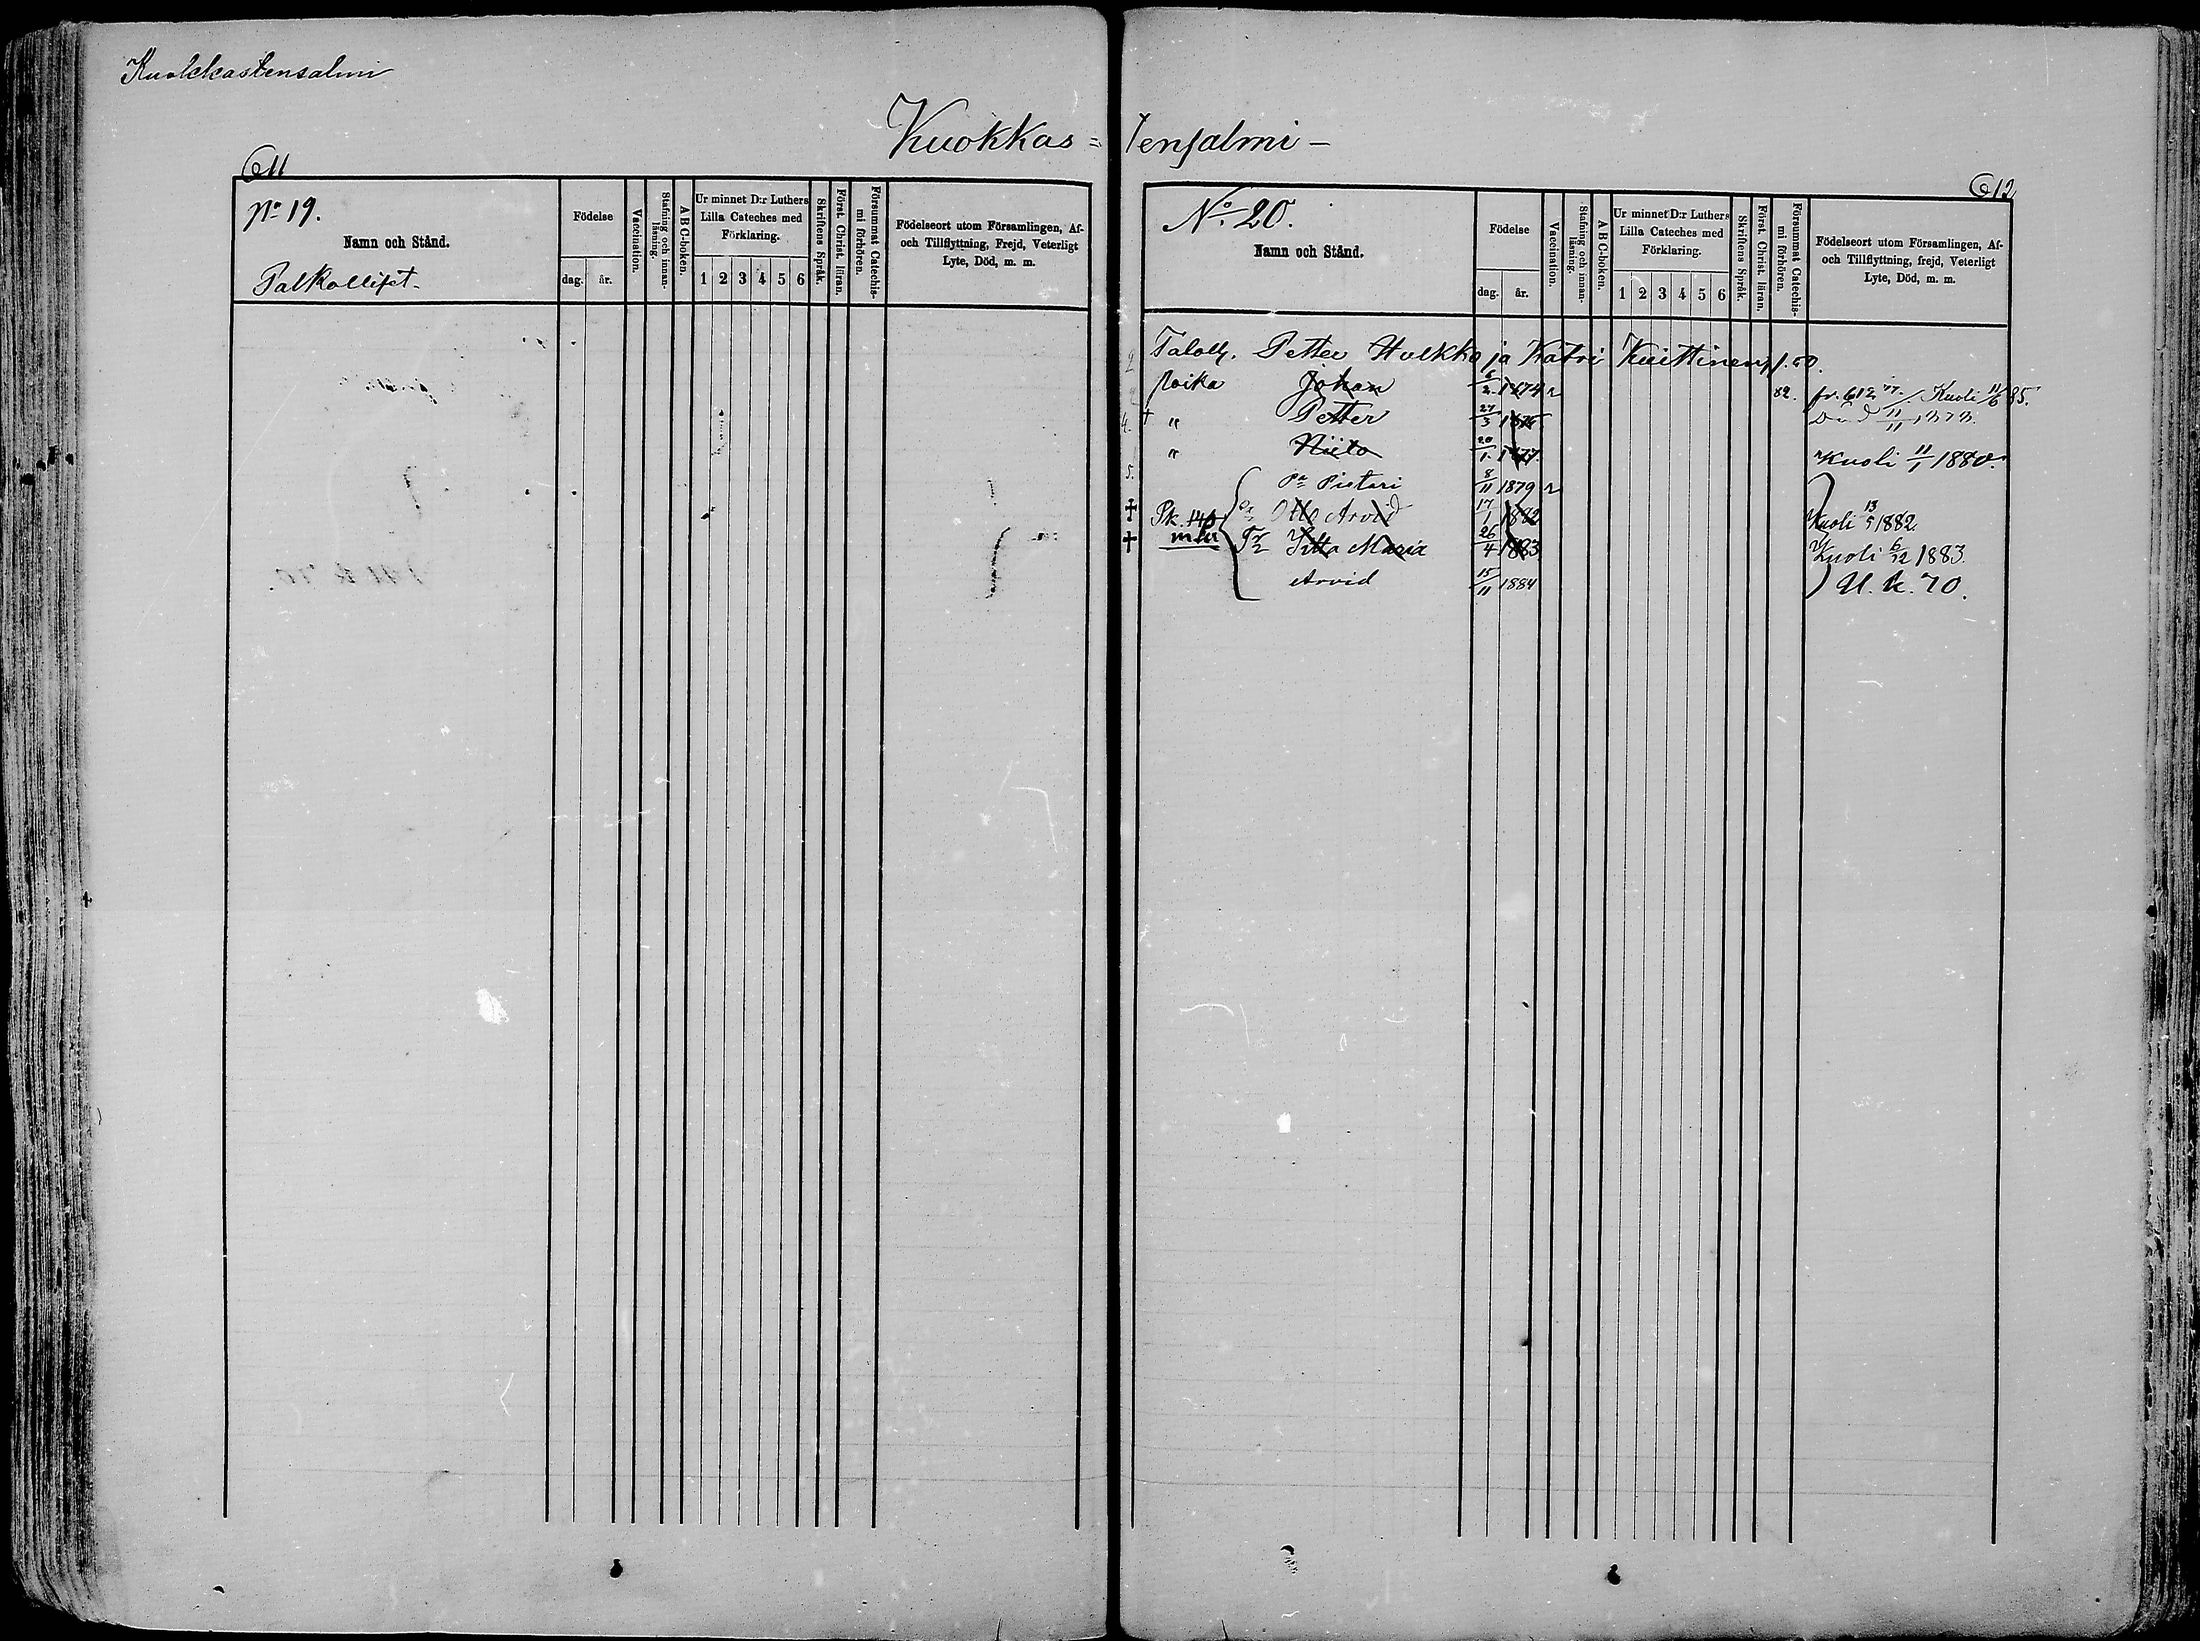 Kuokkastensalmi
Kuokkas=
611
No 19.
Namn och Stånd.
Palkolliset.
Födelse
dag.
år.
Vaccination.
Stafning och innanläsning.
A B C-boken.
Ur minnet D:r Luthers
Lilla Cateches med
Förklaring.
1 2 3 4 5 6
Skriftens Språk.
Först. Christ. läran.
Försummat Catechismi förhören.
Födelseort utom Församlingen, Af-
och Tillflyttning, Frejd, Veterligt
Lyte, Död, m. m.
tensalmi –
612
No 20.
Namn och Stånd.
Födelse
dag.
år.
Vaccination.
Stafning och innanläsning.
A B C-boken.
Ur minnet D:r Luthers
Lilla Cateches med
Förklaring.
1 2 3 4 5 6
Skriftens Språk.
Först. Christ. läran.
Försummat Catechismi förhören.
Födelseort utom Församlingen, Af-
och Tillflyttning, frejd, Veterligt
Lyte, Död, m. m.
Petter Hulkko ja Katri Kuittinen
poika Johan 1874 82. Kuoli 11/6 85.
4. + " Petter 27/3 11/11
" Niilo 20/1 1877 Kuoli 11/1 1880.
5. Pa Pietari 8/11 1879
+ Pk. Otto Arvid 17/1 1882 Kuoli 13/5 1882
+ Maria 26/4 1883 Kuoli 6/12 1883.
Arvid 15/11 1884 U. k. 70.